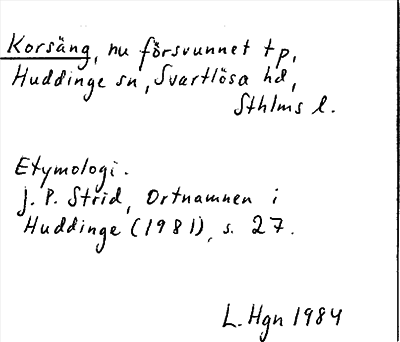 Korsäng, nu försvunnet tp,
Huddinge sn, Svartlösa hd,
Sthlms l.
Etymologi.
J. P. Strid, Ortnamnen i
Huddinge (1981), s. 27.
L. Hgn 1984